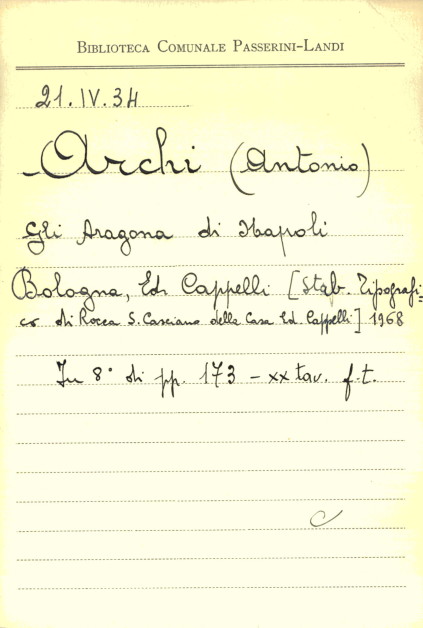 BIBLIOTECA COMUNALE PASSERINI-LANDI
21.IV.34
Archi (Antonio)
Gli Aragona di Napoli
Bologna, Ed. Cappelli [Stab. Tipografi=
co di Rocca S. Casciano della Casa Ed. Cappelli] 1968
In 8° di pp. 173 - xx tav. f.t.
C